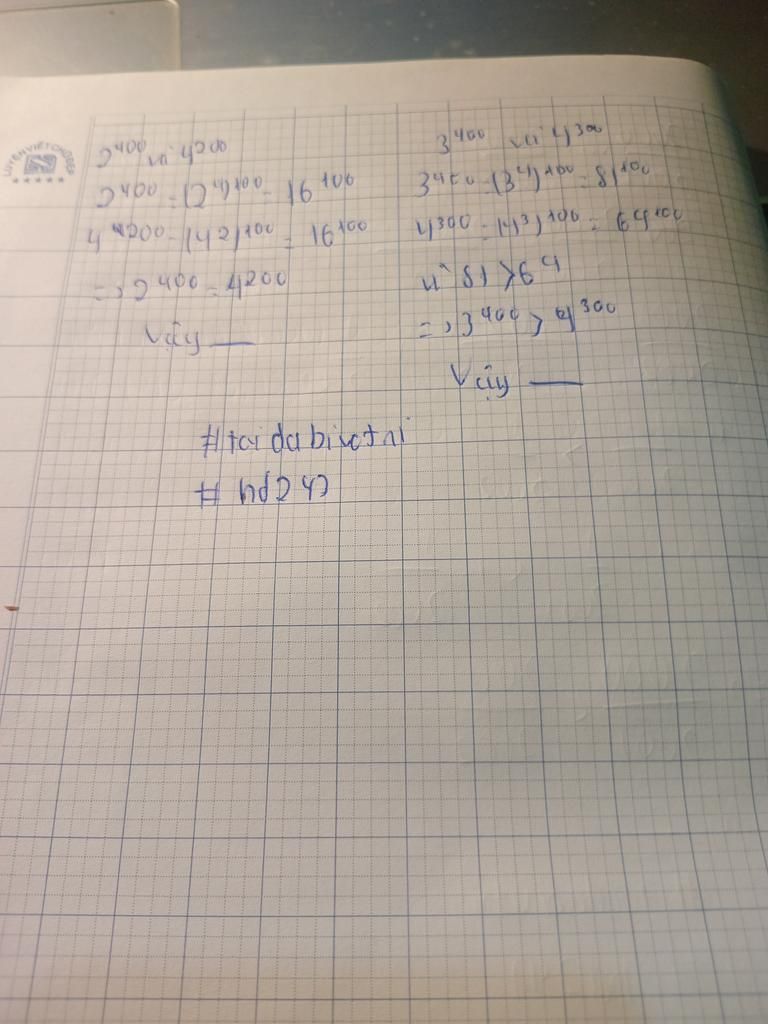 2⁴⁰⁰ và 4²⁰⁰
2⁴⁰⁰ = (2⁴)¹⁰⁰ = 16¹⁰⁰
4²⁰⁰ = (4²)¹⁰⁰ = 16¹⁰⁰
=> 2⁴⁰⁰ = 4²⁰⁰
Vậy —
3⁴⁰⁰ và 4³⁰⁰
3⁴⁰⁰ = (3⁴)¹⁰⁰ = 81¹⁰⁰
4³⁰⁰ = (4³)¹⁰⁰ = 64¹⁰⁰
=> 3⁴⁰⁰ < 4³⁰⁰
Vậy —
LUYENVIETCHUDEP